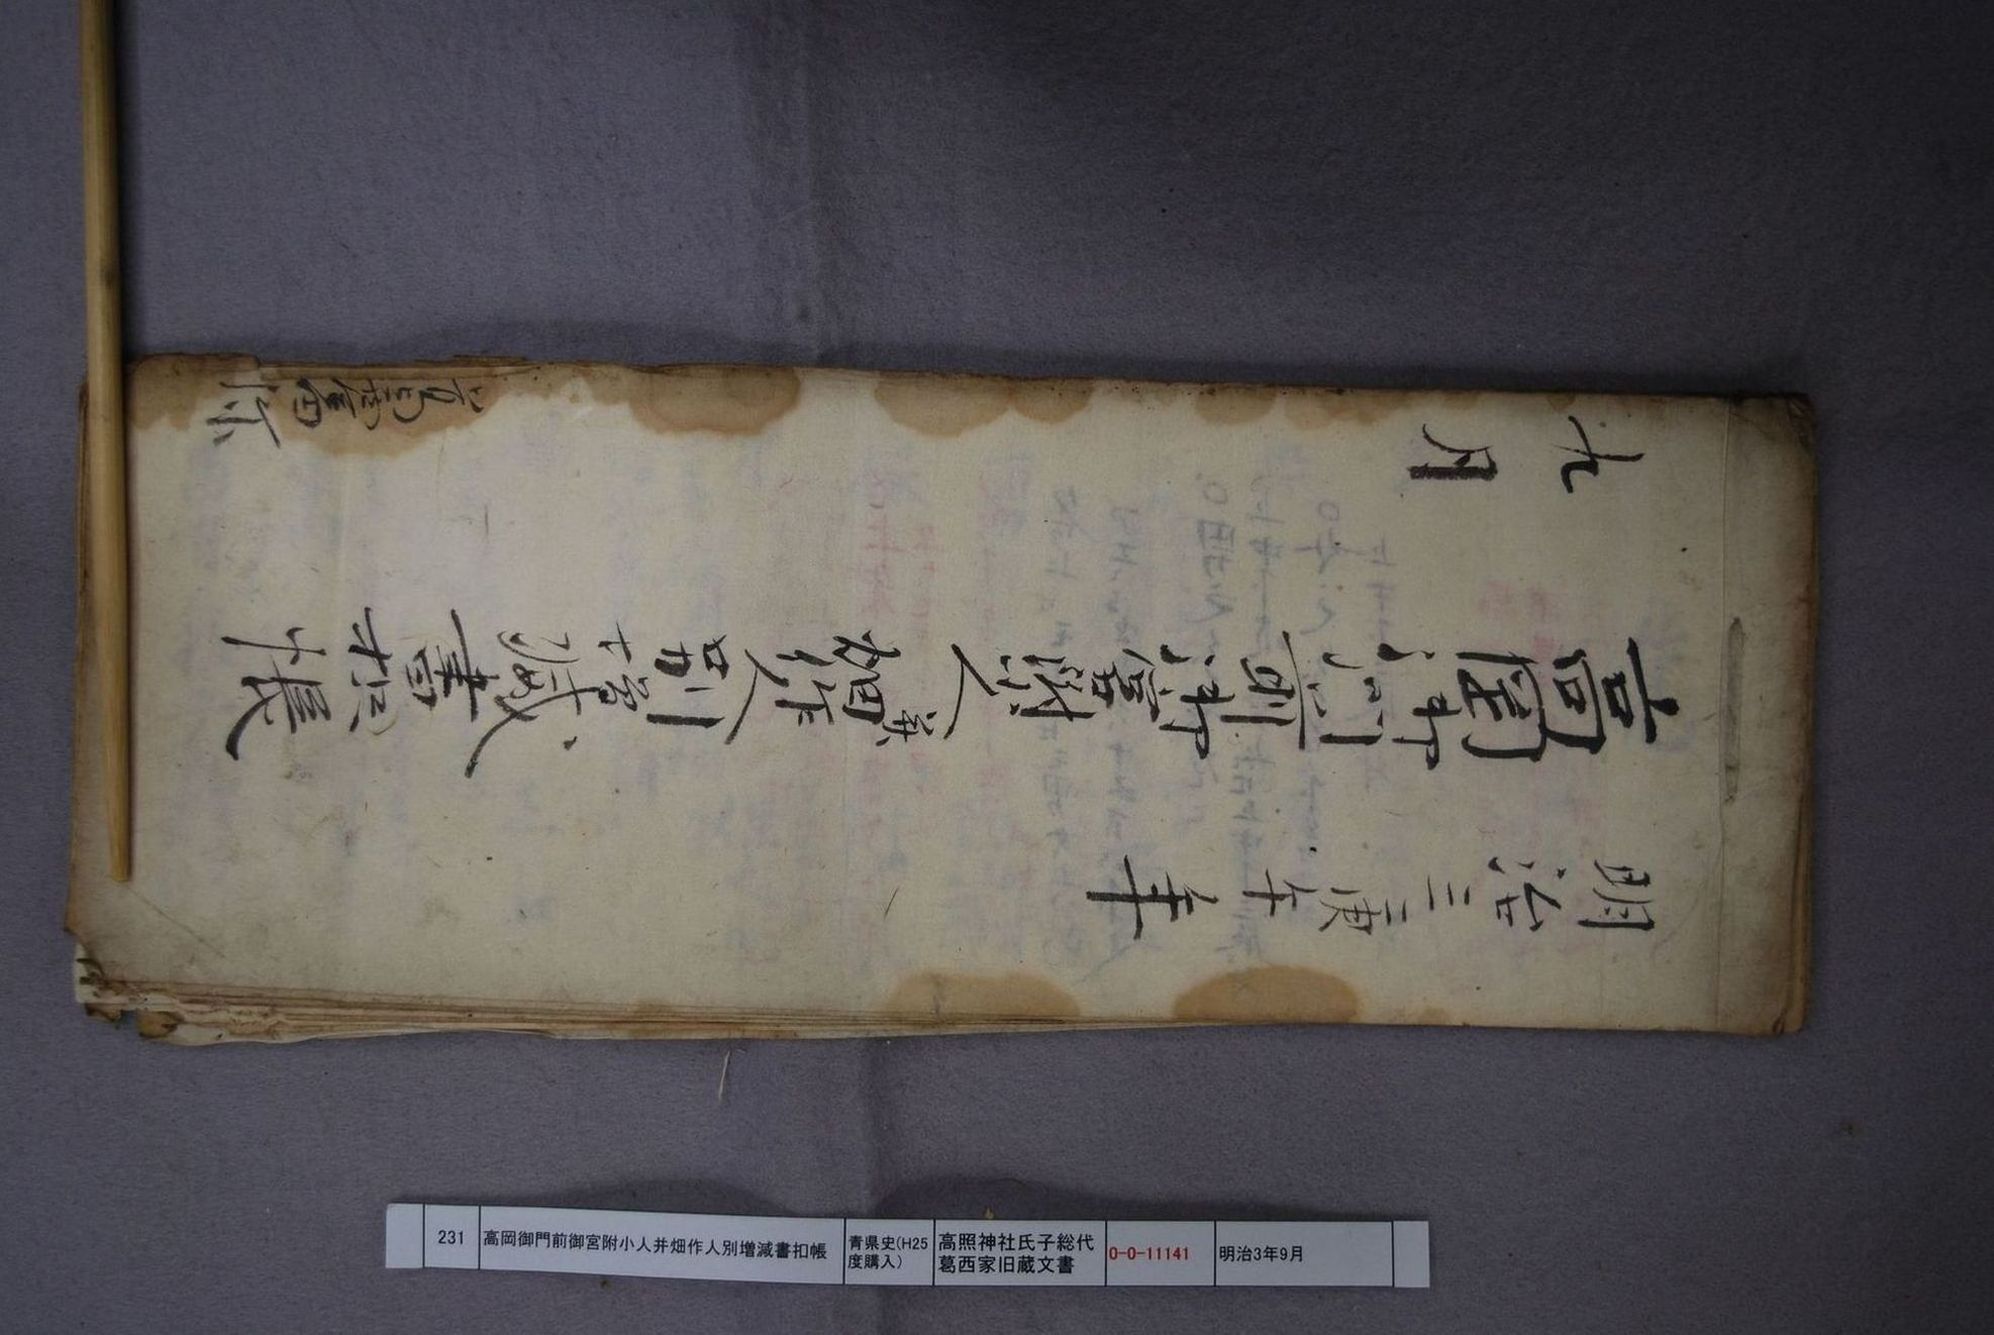 明治三庚午年
高岡御門前御宮附小人并畑作人別増減書扣帳
九月
葛西
231
高岡御門前御宮附小人并畑作人別増減書扣帳
青県史(H25
度購入)
高照神社氏子総代
葛西家旧蔵文書
0-0-11141
明治3年9月